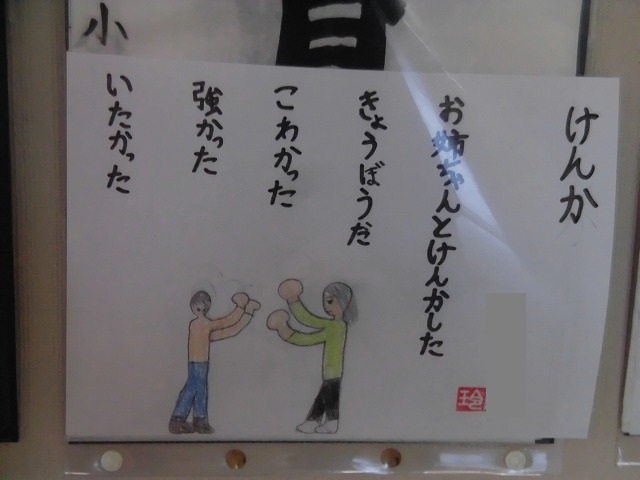 けんか
お姉ちゃんとけんかした
きょうぼうだ
こわかった
強かった
いたかった
玲
小